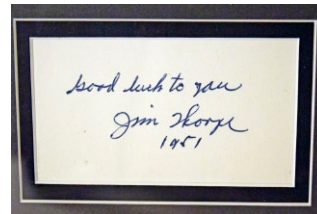 Good luck to you
Jim Thorpe
1951